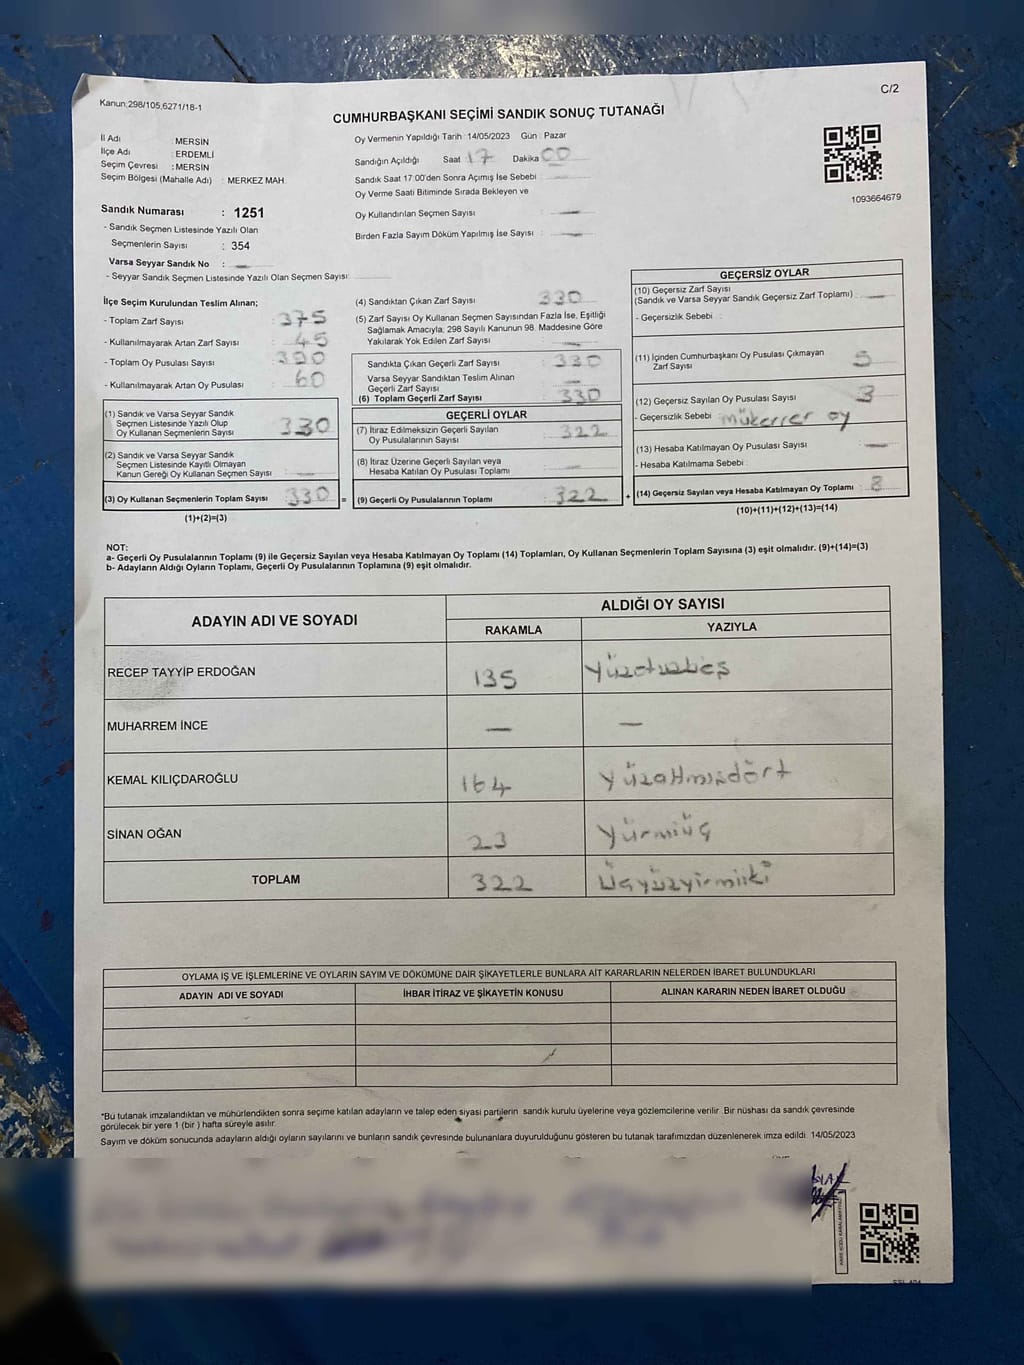 Kanun;298/105,6271/18-1
C/2
CUMHURBAŞKANI SEÇİMİ SANDIK SONUÇ TUTANAĞI
İl Adı : MERSİN
İlçe Adı : ERDEMLİ
Seçim Çevresi : MERSİN
Seçim Bölgesi (Mahalle Adı) : MERKEZ MAH.
Sandık Numarası : 1251
- Sandık Seçmen Listesinde Yazılı Olan
Seçmenlerin Sayısı : 354
Varsa Seyyar Sandık No : —
- Seyyar Sandık Seçmen Listesinde Yazılı Olan Seçmen Sayısı:
Oy Vermenin Yapıldığı Tarih : 14/05/2023 Gün : Pazar
Sandığın Açıldığı Saat 17 Dakika 00
Sandık Saat 17:00'den Sonra Açımış İse Sebebi :
Oy Verme Saati Bitiminde Sırada Bekleyen ve
Oy Kullandırılan Seçmen Sayısı : —
Birden Fazla Sayım Döküm Yapılmış İse Sayısı : —
1093664679
İlçe Seçim Kurulundan Teslim Alınan;
- Toplam Zarf Sayısı : 375
- Kullanılmayarak Artan Zarf Sayısı : 45
- Toplam Oy Pusulası Sayısı : 390
- Kullanılmayarak Artan Oy Pusulası : 60
(1) Sandık ve Varsa Seyyar Sandık
Seçmen Listesinde Yazılı Olup
Oy Kullanan Seçmenlerin Sayısı : 330
(2) Sandık ve Varsa Seyyar Sandık
Seçmen Listesinde Kayıtlı Olmayan
Kanun Gereği Oy Kullanan Seçmen Sayısı : —
(3) Oy Kullanan Seçmenlerin Toplam Sayısı : 330 =
(1)+(2)=(3)
(4) Sandıktan Çıkan Zarf Sayısı : 330
(5) Zarf Sayısı Oy Kullanan Seçmen Sayısından Fazla İse, Eşitliği
Sağlamak Amacıyla; 298 Sayılı Kanunun 98. Maddesine Göre
Yakılarak Yok Edilen Zarf Sayısı : —
Sandıkta Çıkan Geçerli Zarf Sayısı : 330
Varsa Seyyar Sandıktan Teslim Alınan
Geçerli Zarf Sayısı : —
(6) Toplam Geçerli Zarf Sayısı : 330
GEÇERLİ OYLAR
(7) İtiraz Edilmeksizin Geçerli Sayılan
Oy Pusulalarının Sayısı : 322
(8) İtiraz Üzerine Geçerli Sayılan veya
Hesaba Katılan Oy Pusulası Toplamı : —
(9) Geçerli Oy Pusulalarının Toplamı : 322 +
GEÇERSİZ OYLAR
(10) Geçersiz Zarf Sayısı
(Sandık ve Varsa Seyyar Sandık Geçersiz Zarf Toplamı) : —
- Geçersizlik Sebebi :
(11) İçinden Cumhurbaşkanı Oy Pusulası Çıkmayan
Zarf Sayısı : 5
(12) Geçersiz Sayılan Oy Pusulası Sayısı : 3
- Geçersizlik Sebebi : mükerrer oy
(13) Hesaba Katılmayan Oy Pusulası Sayısı : —
- Hesaba Katılmama Sebebi :
(14) Geçersiz Sayılan veya Hesaba Katılmayan Oy Toplamı : 8
(10)+(11)+(12)+(13)=(14)
NOT:
a- Geçerli Oy Pusulalarının Toplamı (9) ile Geçersiz Sayılan veya Hesaba Katılmayan Oy Toplamı (14) Toplamları, Oy Kullanan Seçmenlerin Toplam Sayısına (3) eşit olmalıdır. (9)+(14)=(3)
b- Adayların Aldığı Oyların Toplamı, Geçerli Oy Pusulalarının Toplamına (9) eşit olmalıdır.
ADAYIN ADI VE SOYADI
ALDIĞI OY SAYISI
RAKAMLA YAZIYLA
RECEP TAYYİP ERDOĞAN 135 Yüzotuzbeş
MUHARREM İNCE — —
KEMAL KILIÇDAROĞLU 164 Yüzaltmışdört
SİNAN OĞAN 23 Yürmiüç
TOPLAM 322 Üçyüzyirmiiki
OYLAMA İŞ VE İŞLEMLERİNE VE OYLARIN SAYIM VE DÖKÜMÜNE DAİR ŞİKAYETLERLE BUNLARA AİT KARARLARIN NELERDEN İBARET BULUNDUKLARI
ADAYIN ADI VE SOYADI İHBAR İTİRAZ VE ŞİKAYETİN KONUSU ALINAN KARARIN NEDEN İBARET OLDUĞU
*Bu tutanak imzalandıktan ve mühürlendikten sonra seçime katılan adayların ve talep eden siyasi partilerin sandık kurulu üyelerine veya gözlemcilerine verilir. Bir nüshası da sandık çevresinde
görülecek bir yere 1 (bir ) hafta süreyle asılır.
Sayım ve döküm sonucunda adayların aldığı oyların sayılarını ve bunların sandık çevresinde bulunanlara duyurulduğunu gösteren bu tutanak tarafımızdan düzenlenerek imza edildi. 14/05/2023